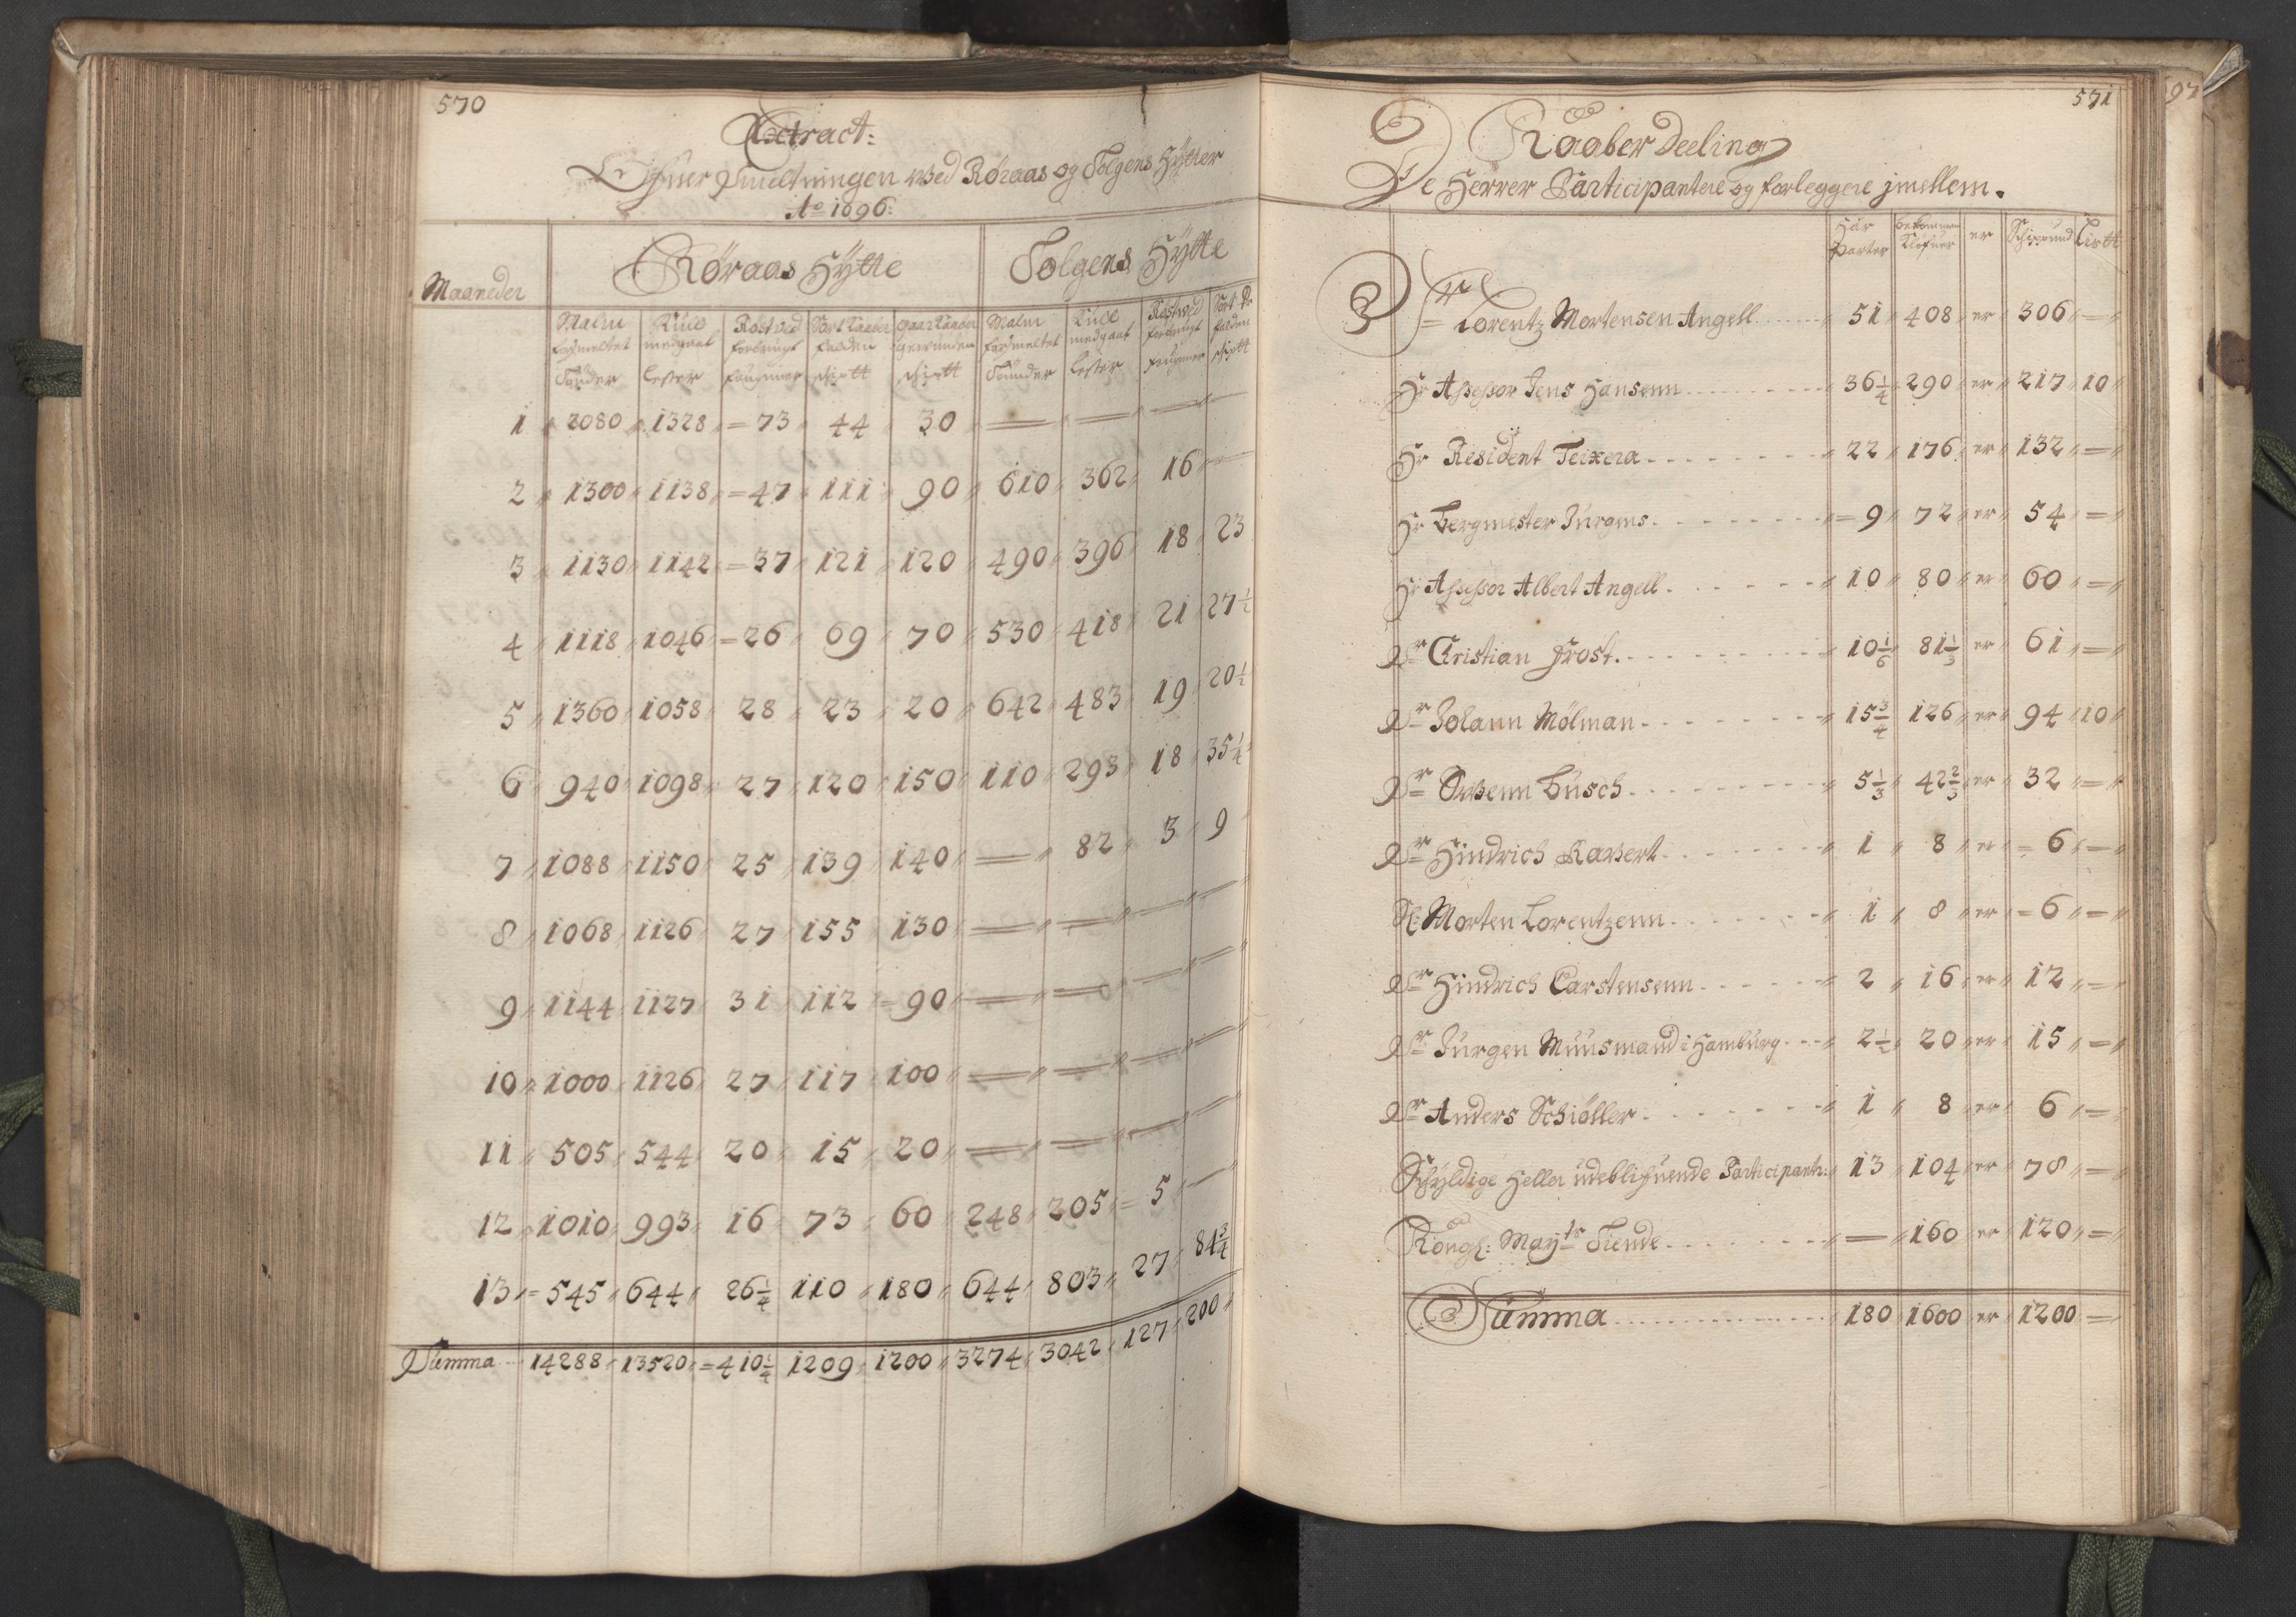 570
Extract:
Ofuer Smeltningen wed Røraas og Tolgens Hÿtter
Ao 1696:
Maaneder
Røraas Hÿtte
Tolgens Hÿtte
Malm forsmeltet Tønder
Kull medgaat Lester
Rostved forbrugt faugner
Sort Kaaber falden schiptt
gaar Kaaber gewunden schiptt
Malm forsmeltet Tønder
Kull medgaat Lester
Rostved forbrugt faugner
Sort falden schiptt
1 2080 1328 = 73 44 30 — — — —
2 1300 1138 = 47 111 90 610 362 16 —
3 1130 1142 = 37 121 120 490 396 18 23
4 1118 1046 = 26 69 70 530 418 21 27½
5 1360 1058 28 23 20 642 483 19 20½
6 940 1098 27 120 150 110 293 18 35¼
7 1088 1150 25 139 140 — 82 3 9
8 1068 1126 27 155 130 — — — —
9 1144 1127 31 112 = 90 — — — —
10 1000 1126 27 117 100 — — — —
11 505 544 20 15 20 — — — —
12 1010 993 16 73 60 248 205 = 5 —
13 = 545 644 26¼ 110 180 644 803 27 84¾
Summa 14288 13520 = 410¼ 1209 1200 3274 3042 127 200
571
Kaaber Deeling
De Herrer Participantere og forleggere jmellem.
Har Parter
bekommer Klofuer
er
Schippund
List
Hr Lorentz Mortensen Angell 51 408 er 306 =
Hr Assessor Jens Hansenn 36¼ 290 er 217 10
Hr Resident Teixera 22 176 er 132 =
Hr Bergmester Jürgens = 9 72 er 54 =
Hr Assessor Albert Angell 10 80 er 60 =
Sr Christian Frost. 10⅙ 81⅓ er 61 =
Sr Johann Mölman 15¾ 126 er 94 10
Sr Swenn Busch 5⅓ 42⅔ er 32 =
Sr Hindrich Kawert 1 8 er = 6 =
Sl: Morten Lorentzenn 1 8 er = 6 =
Sr Hindrich Carstensenn 2 16 er 12 =
Sr Jürgen Muusmand i Hamburg 2½ 20 er 15 =
Sr Anders Schiøller 1 8 er 6 =
Schyldige Heller udeblifuende Participantr: 13 104 er 78 =
Kongl: Mayts Tiende — 160 er 120 =
Summa 180 1600 er 1200 =